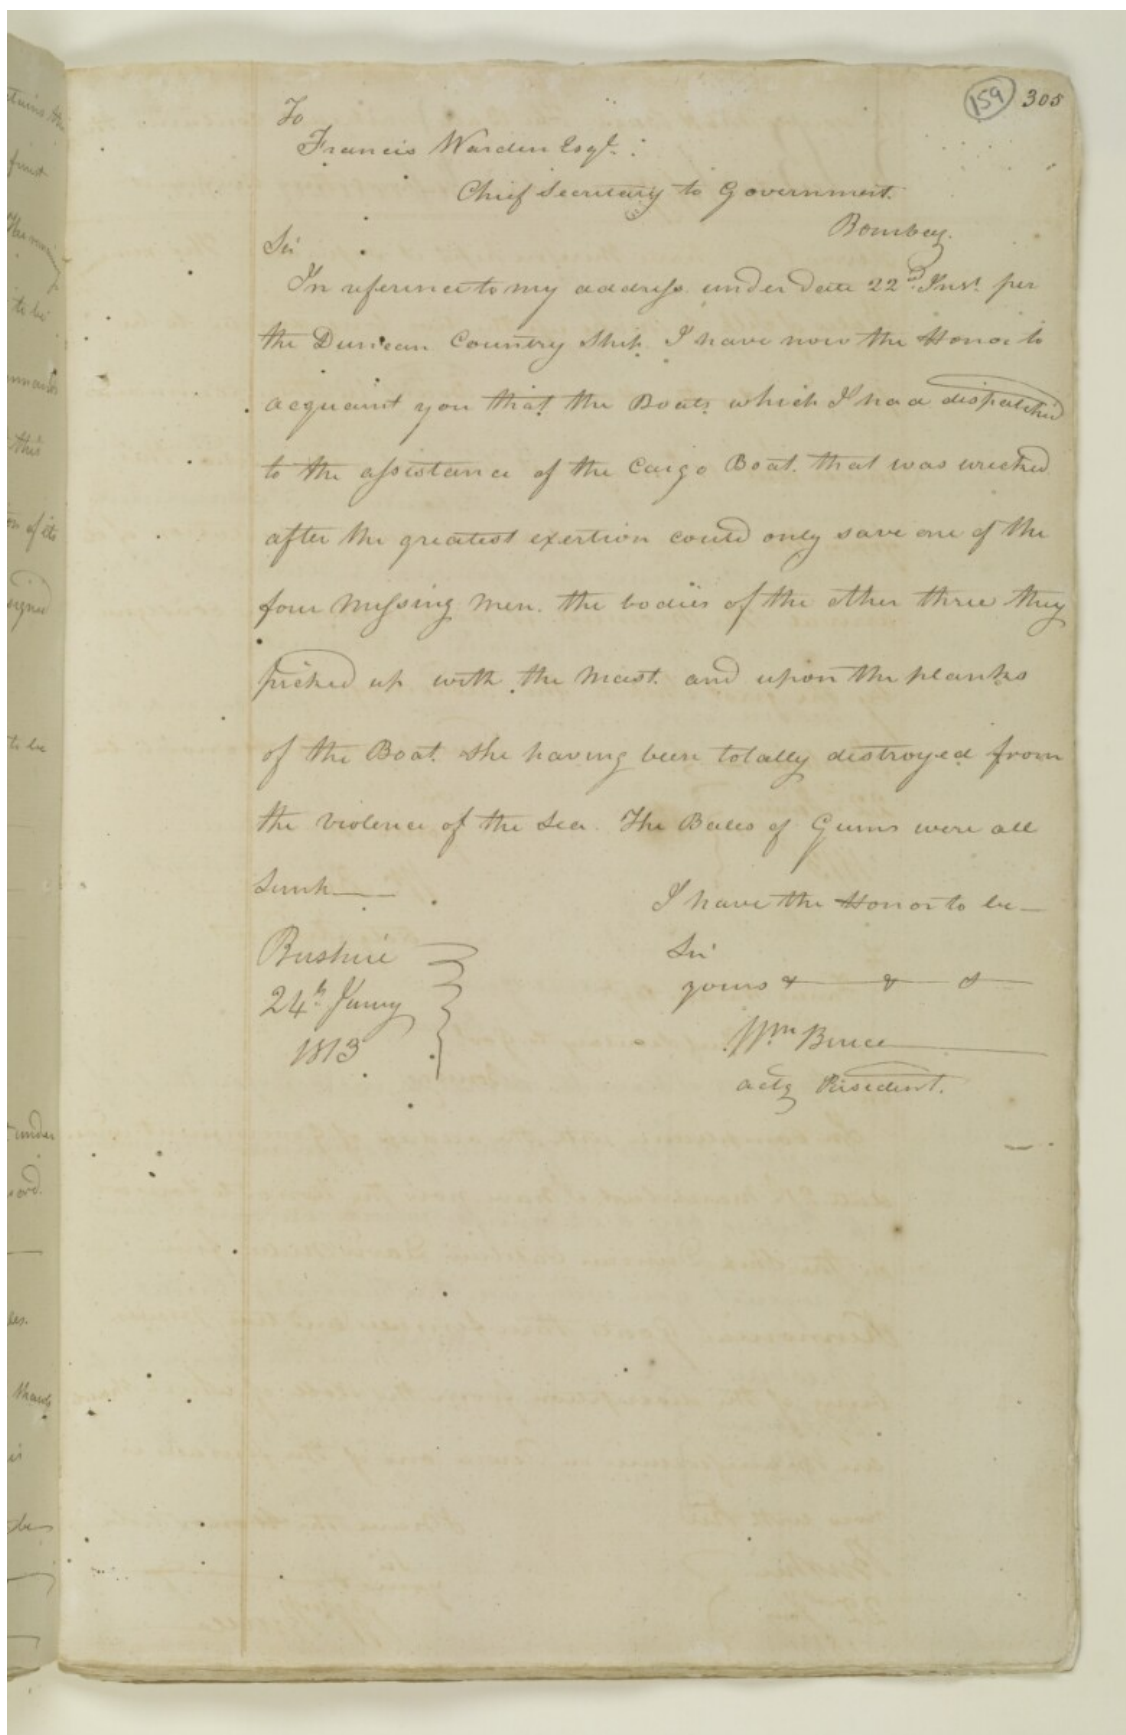 159 305
To
Francis Warden Esqr. :
Chief Secretary to Government.
Bombay.
Sir
In reference to my address under date 22d. Inst. per
the Duncan Country Ship I have now the Honor to
acquaint you that the Boats which I had dispatched
to the assistance of the Cargo Boat that was wrecked
after the greatest exertion could only save one of the
four missing men. the bodies of the other three they
picked up with the mast and upon the planks
of the Boat She having been totally destroyed from
the violence of the Sea. The Bales of Gums were all
Sunk—
I have the Honor to be—
Bushire
Sir
24th. Janry
yours & — & — &
1813
Wm Bruce
actg Resident.